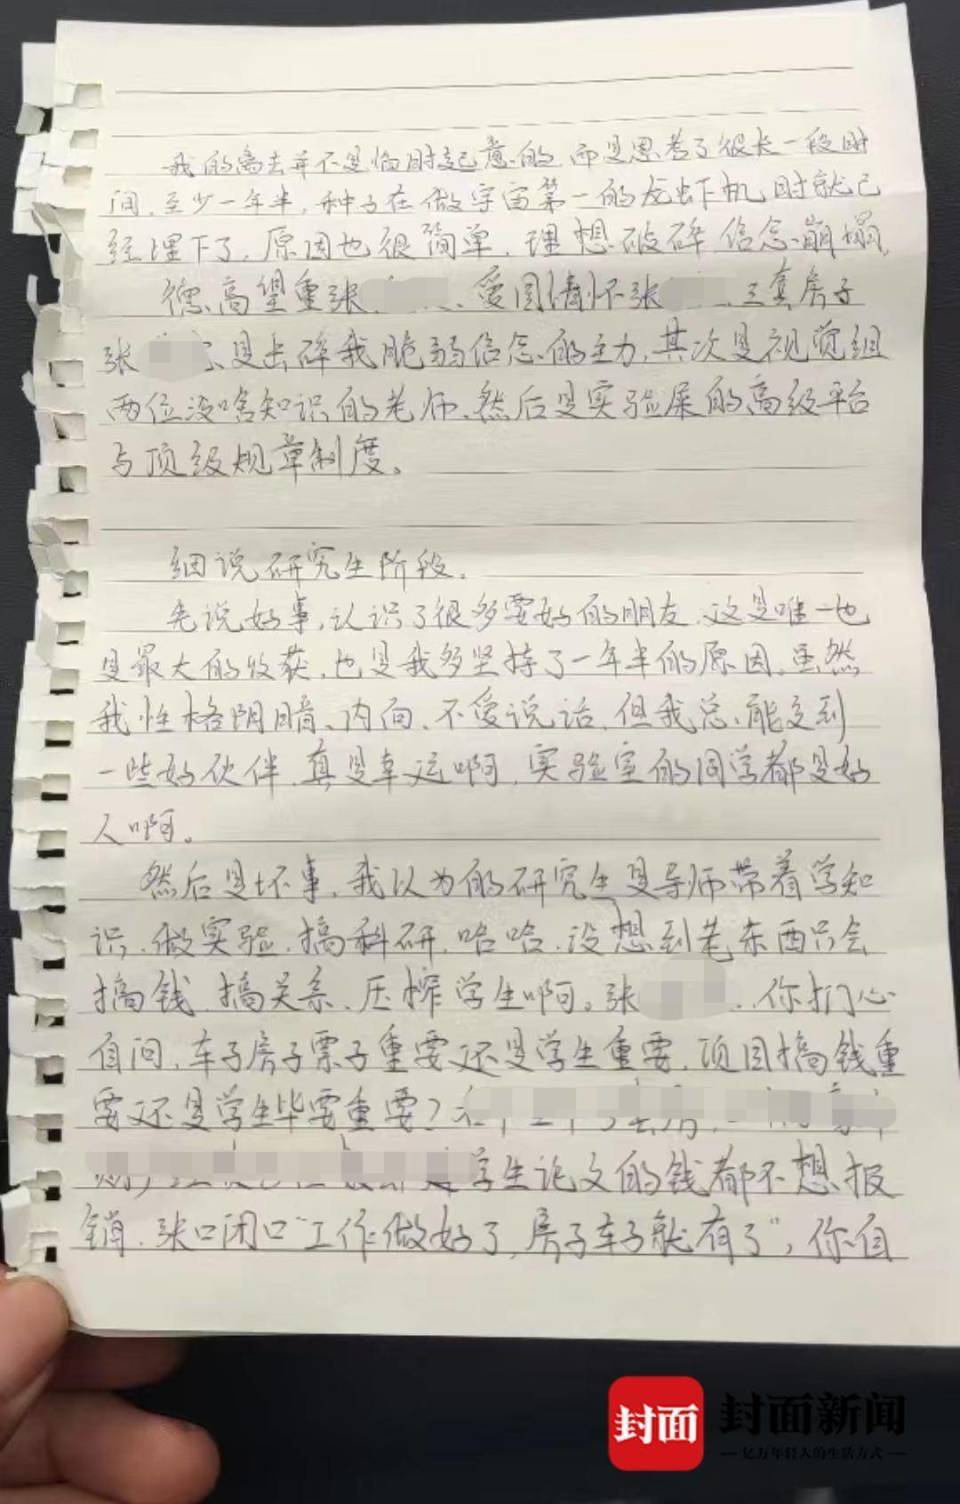 我的离去并不是临时起意的，而是思考了很长一段时
间，至少一年半，种子在做宇宙第一的龙虾机时就已
经埋下了，原因也很简单，理想破碎信念崩塌。
德高望重张 、爱国情怀张 、三套房子
张 是击碎我脆弱信念的主力，其次是视觉组
两位没啥知识的老师，然后是实验屎的高级平台
与顶级规章制度。
细说研究生阶段。
先说好事，认识了很多要好的朋友，这是唯一也
是最大的收获，也是我多坚持了一年半的原因，虽然
我性格阴暗、内向、不爱说话，但我总能交到
一些好伙伴，真是幸运啊，实验室的同学都是好
人啊。
然后是坏事，我以为的研究生是导师带着学知
识、做实验、搞科研，哈哈，没想到老东西只会
搞钱、搞关系、压榨学生啊。张 ，你扪心
自问，车子房子票子重要还是学生重要，项目搞钱重
要还是学生毕要重要？
学生论文的钱都不想报
销，张口闭口“工作做好了，房子车子就有了”，你自
封面
封面新闻
亿万年轻人的生活方式